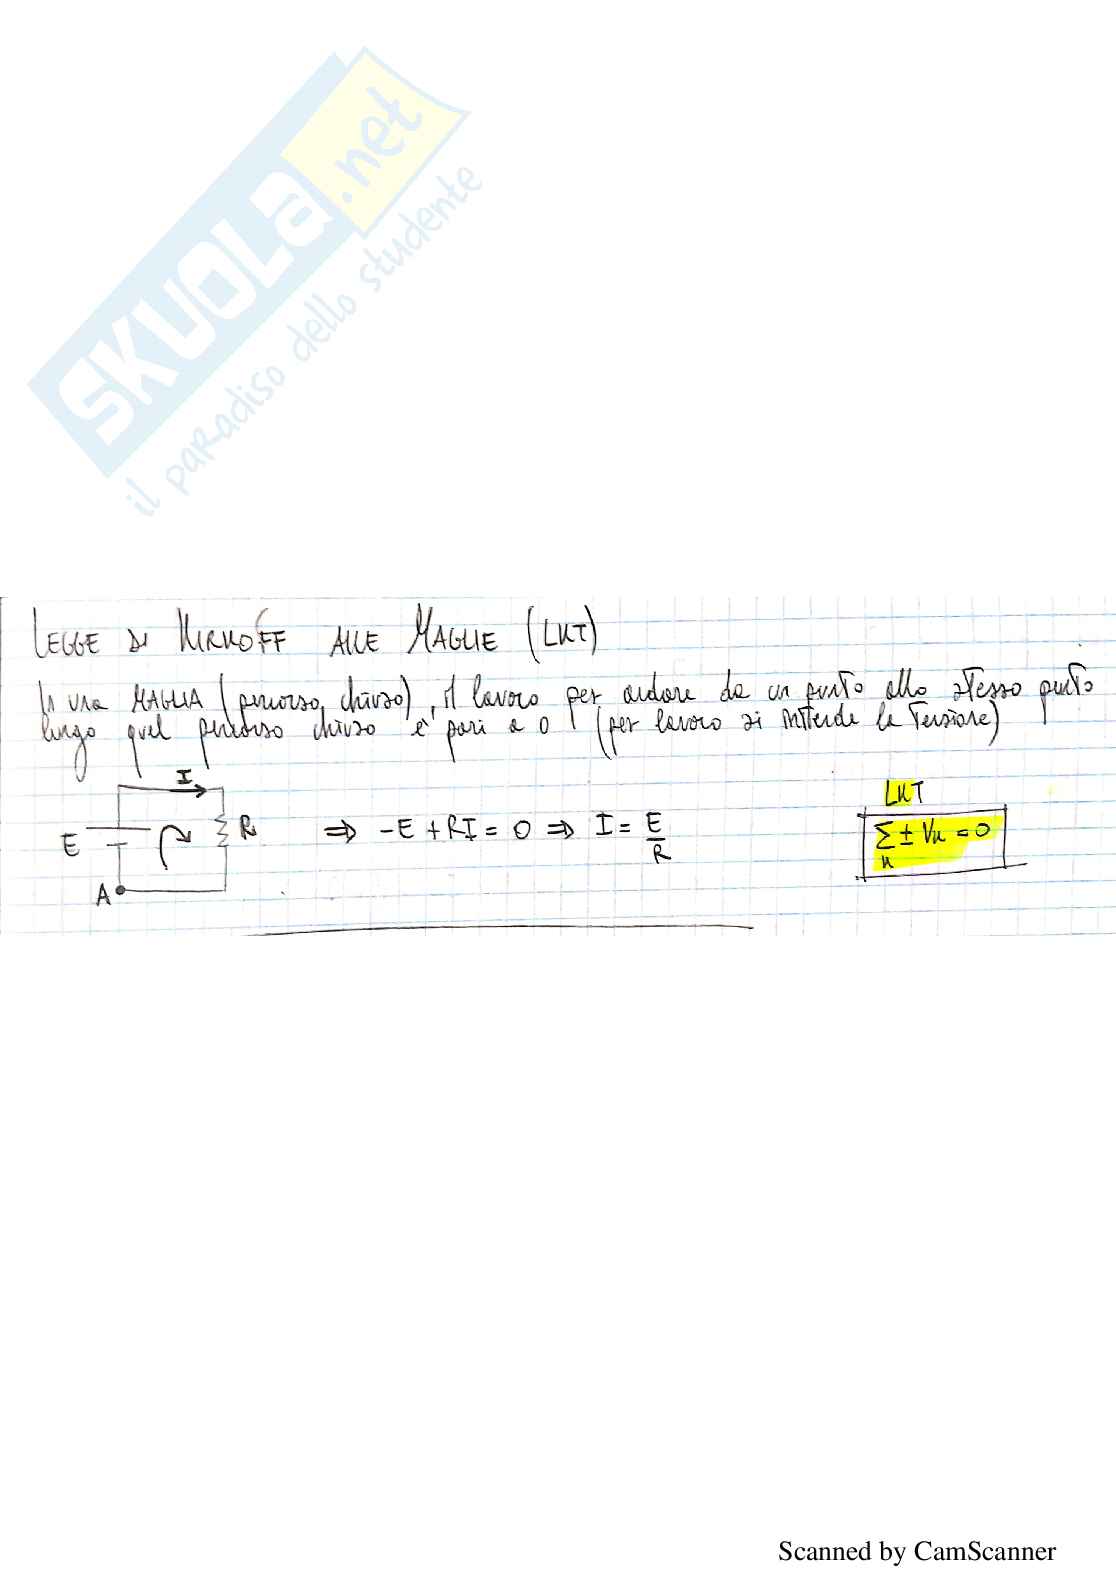 SKUOLA.net
il paradiso dello studente
LEGGE DI KIRKOFF ALLE MAGLIE (LKT)
In una MAGLIA (percorso chiuso), il lavoro per andare da un punto allo stesso punto
lungo quel percorso chiuso è pari a 0 (per lavoro si intende la Tensione)
I
E
R
A
⇒ -E + RI = 0 ⇒ I = E/R
LKT
∑ ± Vk = 0
k
Scanned by CamScanner